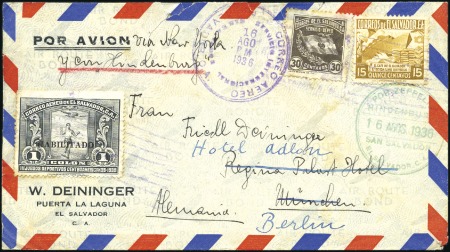 POR AVION via New York
y con Hindenburg
CORREO AEREO
SERVICIO INTERNACIONAL
16
AGO
1936
CORREOS DE EL SALVADOR
30
CENTAVOS
30
CORREOS DE EL SALVADOR, C.A.
15
QUINCE CENTAVOS
15
CORREO AEREO EL SALVADOR, C.A.
HABILITADO
1
COLON
1
Frau
Friedl Deininger
Hotel Adlon
Regina Palast Hotel
München
Alemania.
Berlin
16 AGO. 1936
SAN SALVADOR
W. DEININGER
PUERTA LA LAGUNA
EL SALVADOR
C. A.